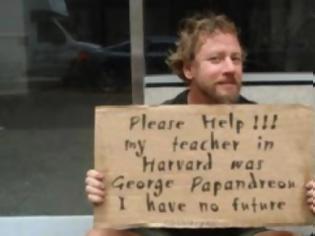 Please Help!!!
my teacher in
Harvard was
George Papandreou
I have no future